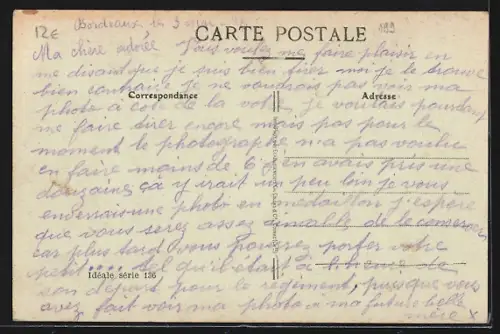 12€
Bordeaux le 3
199
CARTE POSTALE
Ma chère adorée Vous voulez me faire plaisir en
me disant que je suis bien tirer moi je le trouve
bien contraire je ne voudrais pas voir ma
Correspondance
Adresse
photo à coté de la votre je voudrais pourtant
me faire tirer encore mais pas pour le
moment le photographe n'a pas voulu
en faire moins de 6 j'en avais pris une
douzaine ça y irait un peu loin je vous
enverrais une photo en medaillon j'espere
que vous serez assez aimable de le conserver
car plus tard vous pourrez porter votre
petit .... tel qu'il était à
Idéale, série 126
son départ pour le regiment, puisque vous
avez fait voir ma photo à ma future belle
mère x